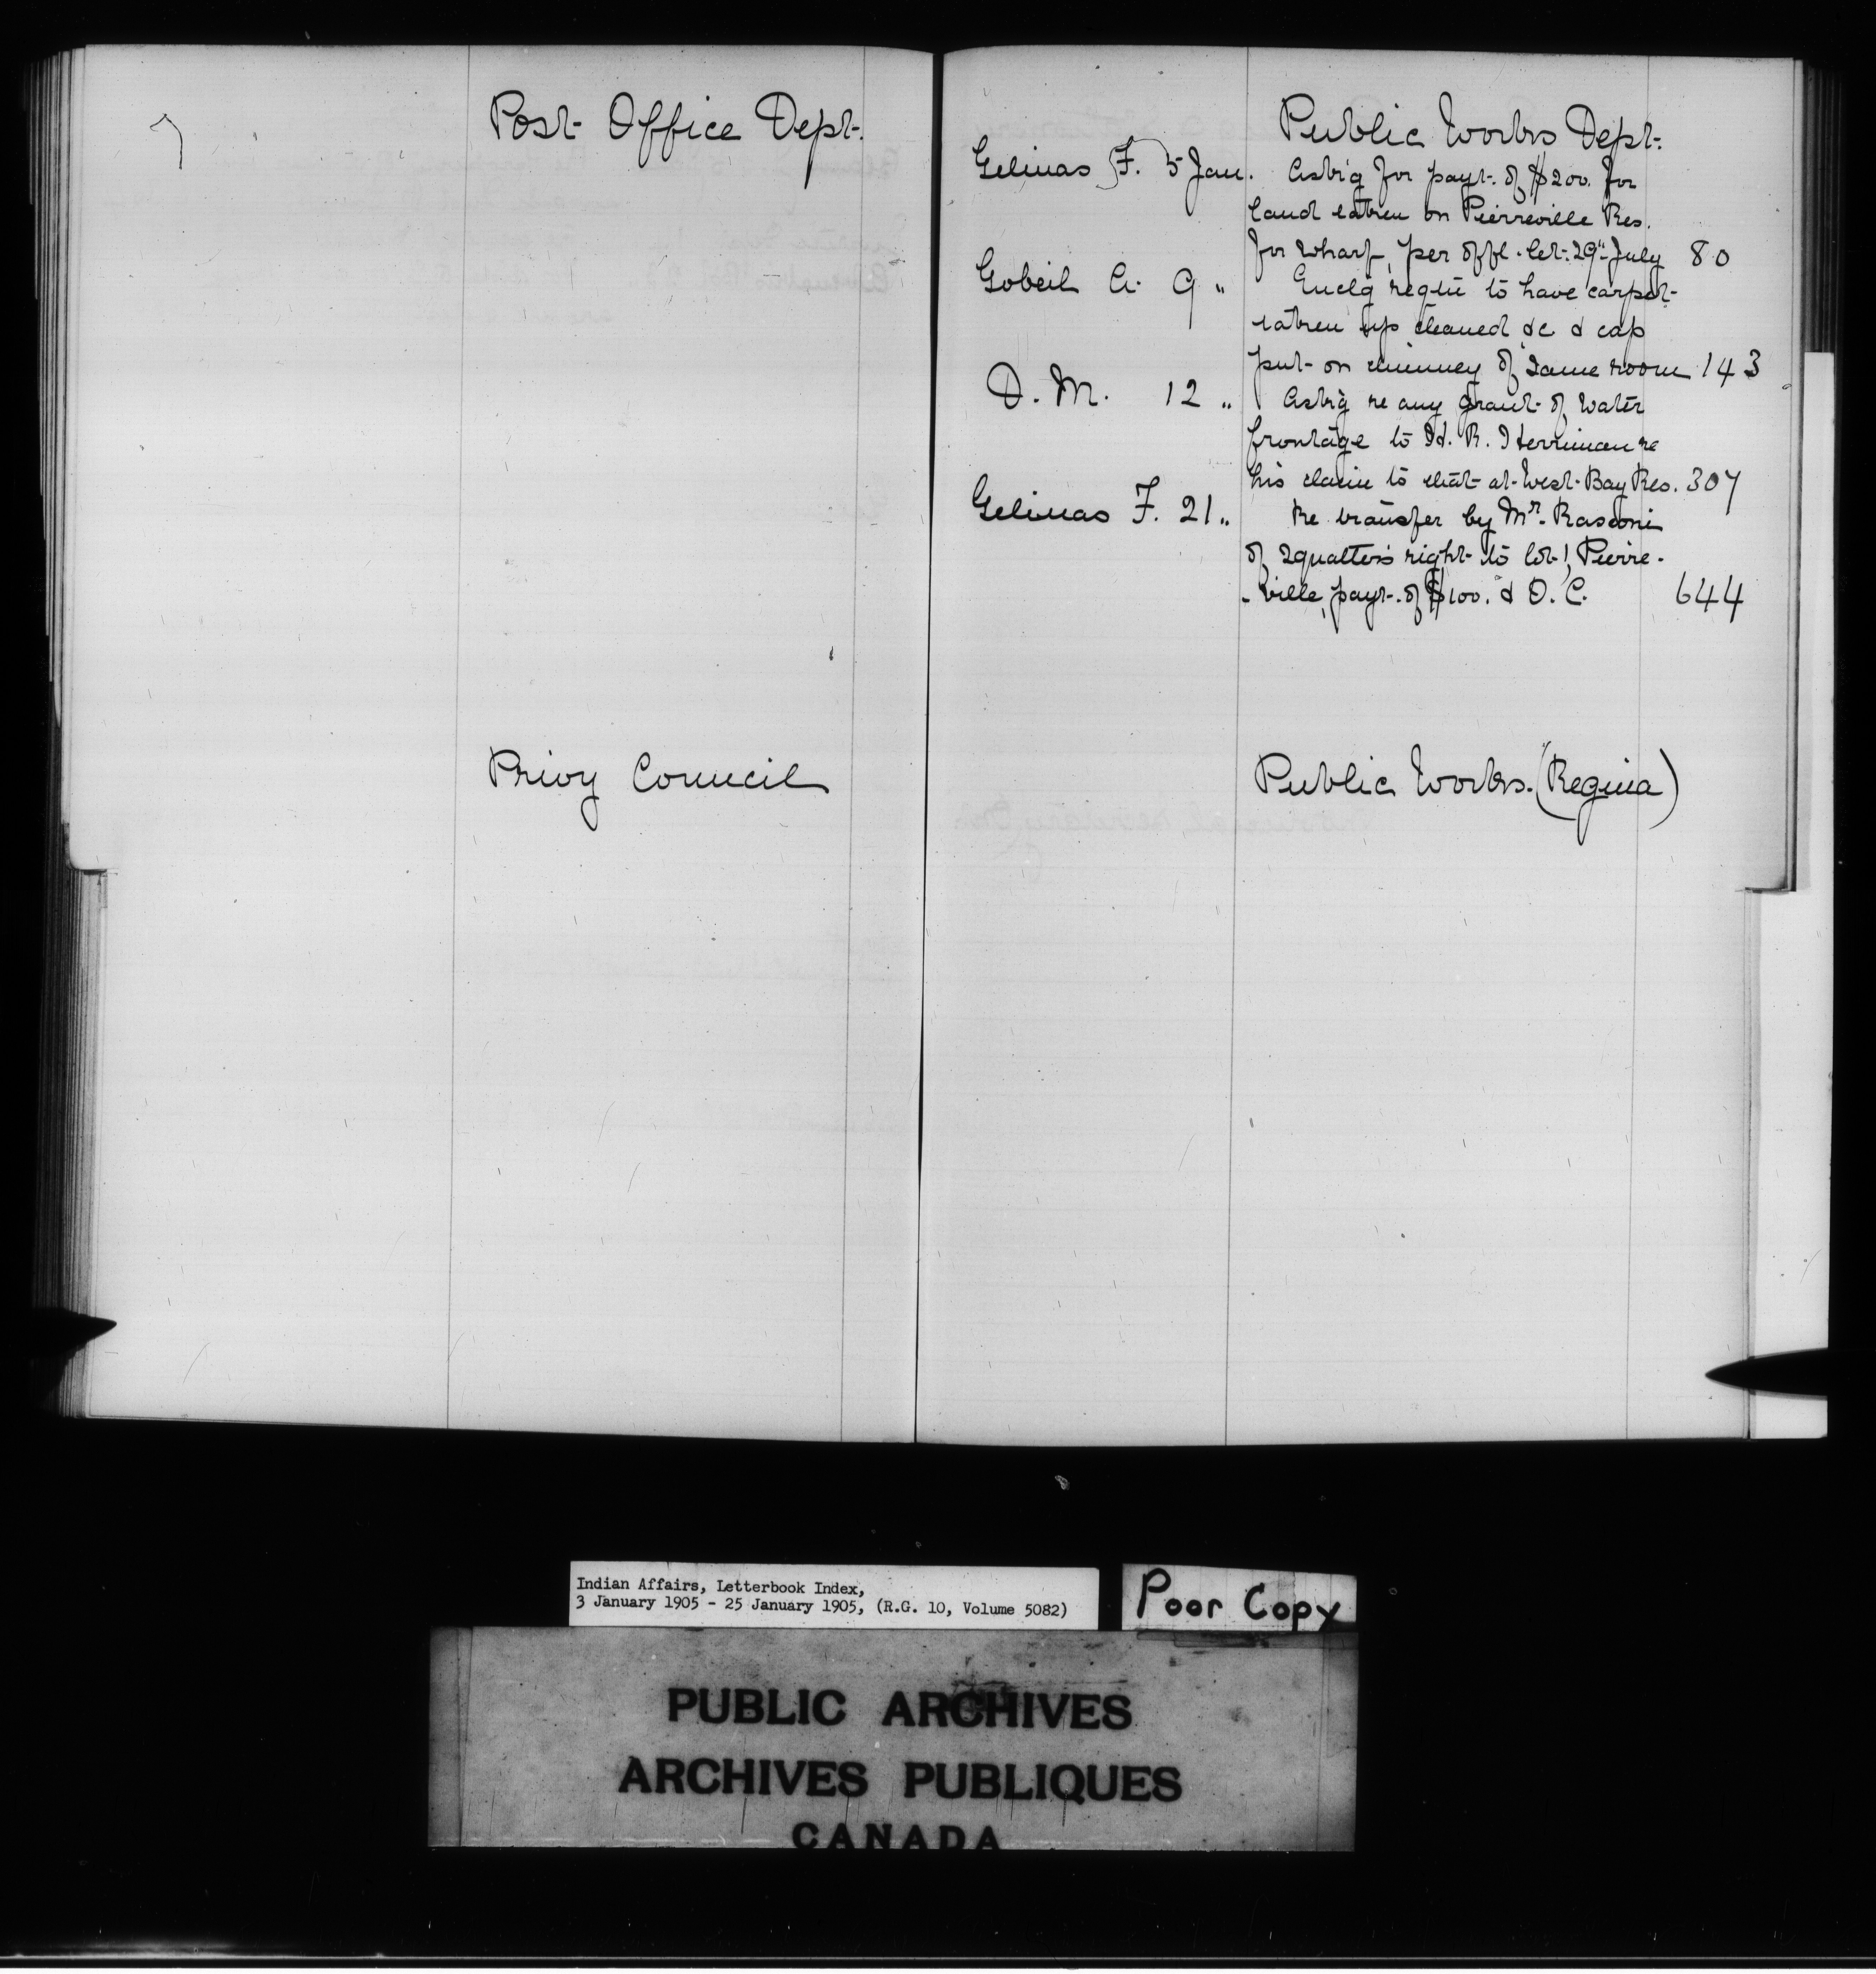 Post Office Dept.
Privy Council
Public Works Dept.
Gelinas F. 5 Jan. Ask'g for payt. of $200. for
land taken on Pierreville Res.
for wharf, per offl. let. 29" July 80
Gobeil A. 9 " Enclg reqtn to have carpet
taken up cleaned &c & cap
put on chimney of same room 143
D. M. 12 " Ask'g re any grant of water
frontage to H. R. Herriman re
his claim to that at West Bay Res. 307
Gelinas F. 21 " Re transfer by Mr. Rasconi
of squatters right to lot 1, Pierre-
-ville, payt. of $100. & O. C. 644
Public Works. (Regina)
Indian Affairs, Letterbook Index,
3 January 1905 - 25 January 1905, (R.G. 10, Volume 5082)
Poor Copy
PUBLIC ARCHIVES
ARCHIVES PUBLIQUES
CANADA